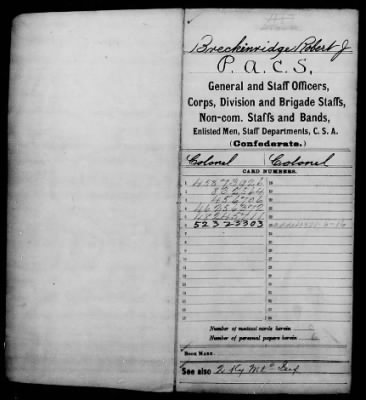 Breckinridge Robert J
P. A. C. S.
General and Staff Officers,
Corps, Division and Brigade Staffs,
Non-com. Staffs and Bands,
Enlisted Men, Staff Departments, C. S. A.
(Confederate.)
Colonel Colonel
CARD NUMBERS.
1
2
3 456706
4 46256372
5 48245711
6 52323303
Number of medical cards herein
Number of personal papers herein
BOOK MARK:
See also 2 Ky Mt'd Inf